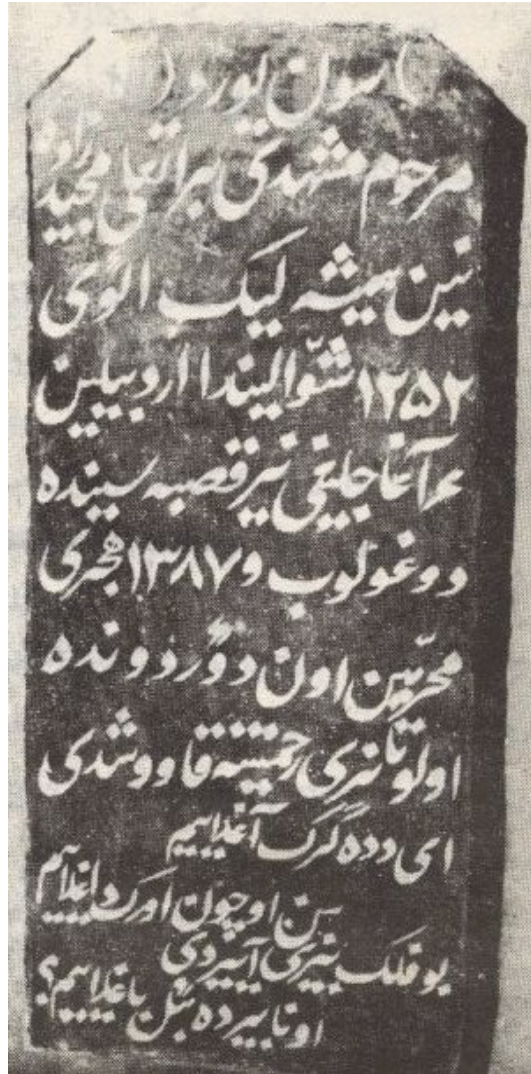 ) سون یورد (
مرحوم مشهدی براتعلی مجیدزاده
نین همیشه لیک ائوی
۱۲۵۲ شوّالیندا اردبیلین
۶ آغاجلیغی نیر قصبه سینده
دوغولوب و ۱۳۸۷ هجری
محرّمین اون دؤردونده
اولو تانری رحمتینه قاووشدی
ای دده گرک آغلاییم
سن اوچون اورک داغلاییم
بو فلک بیزی آییردی
اونا بیرده بئل باغلاییم؟